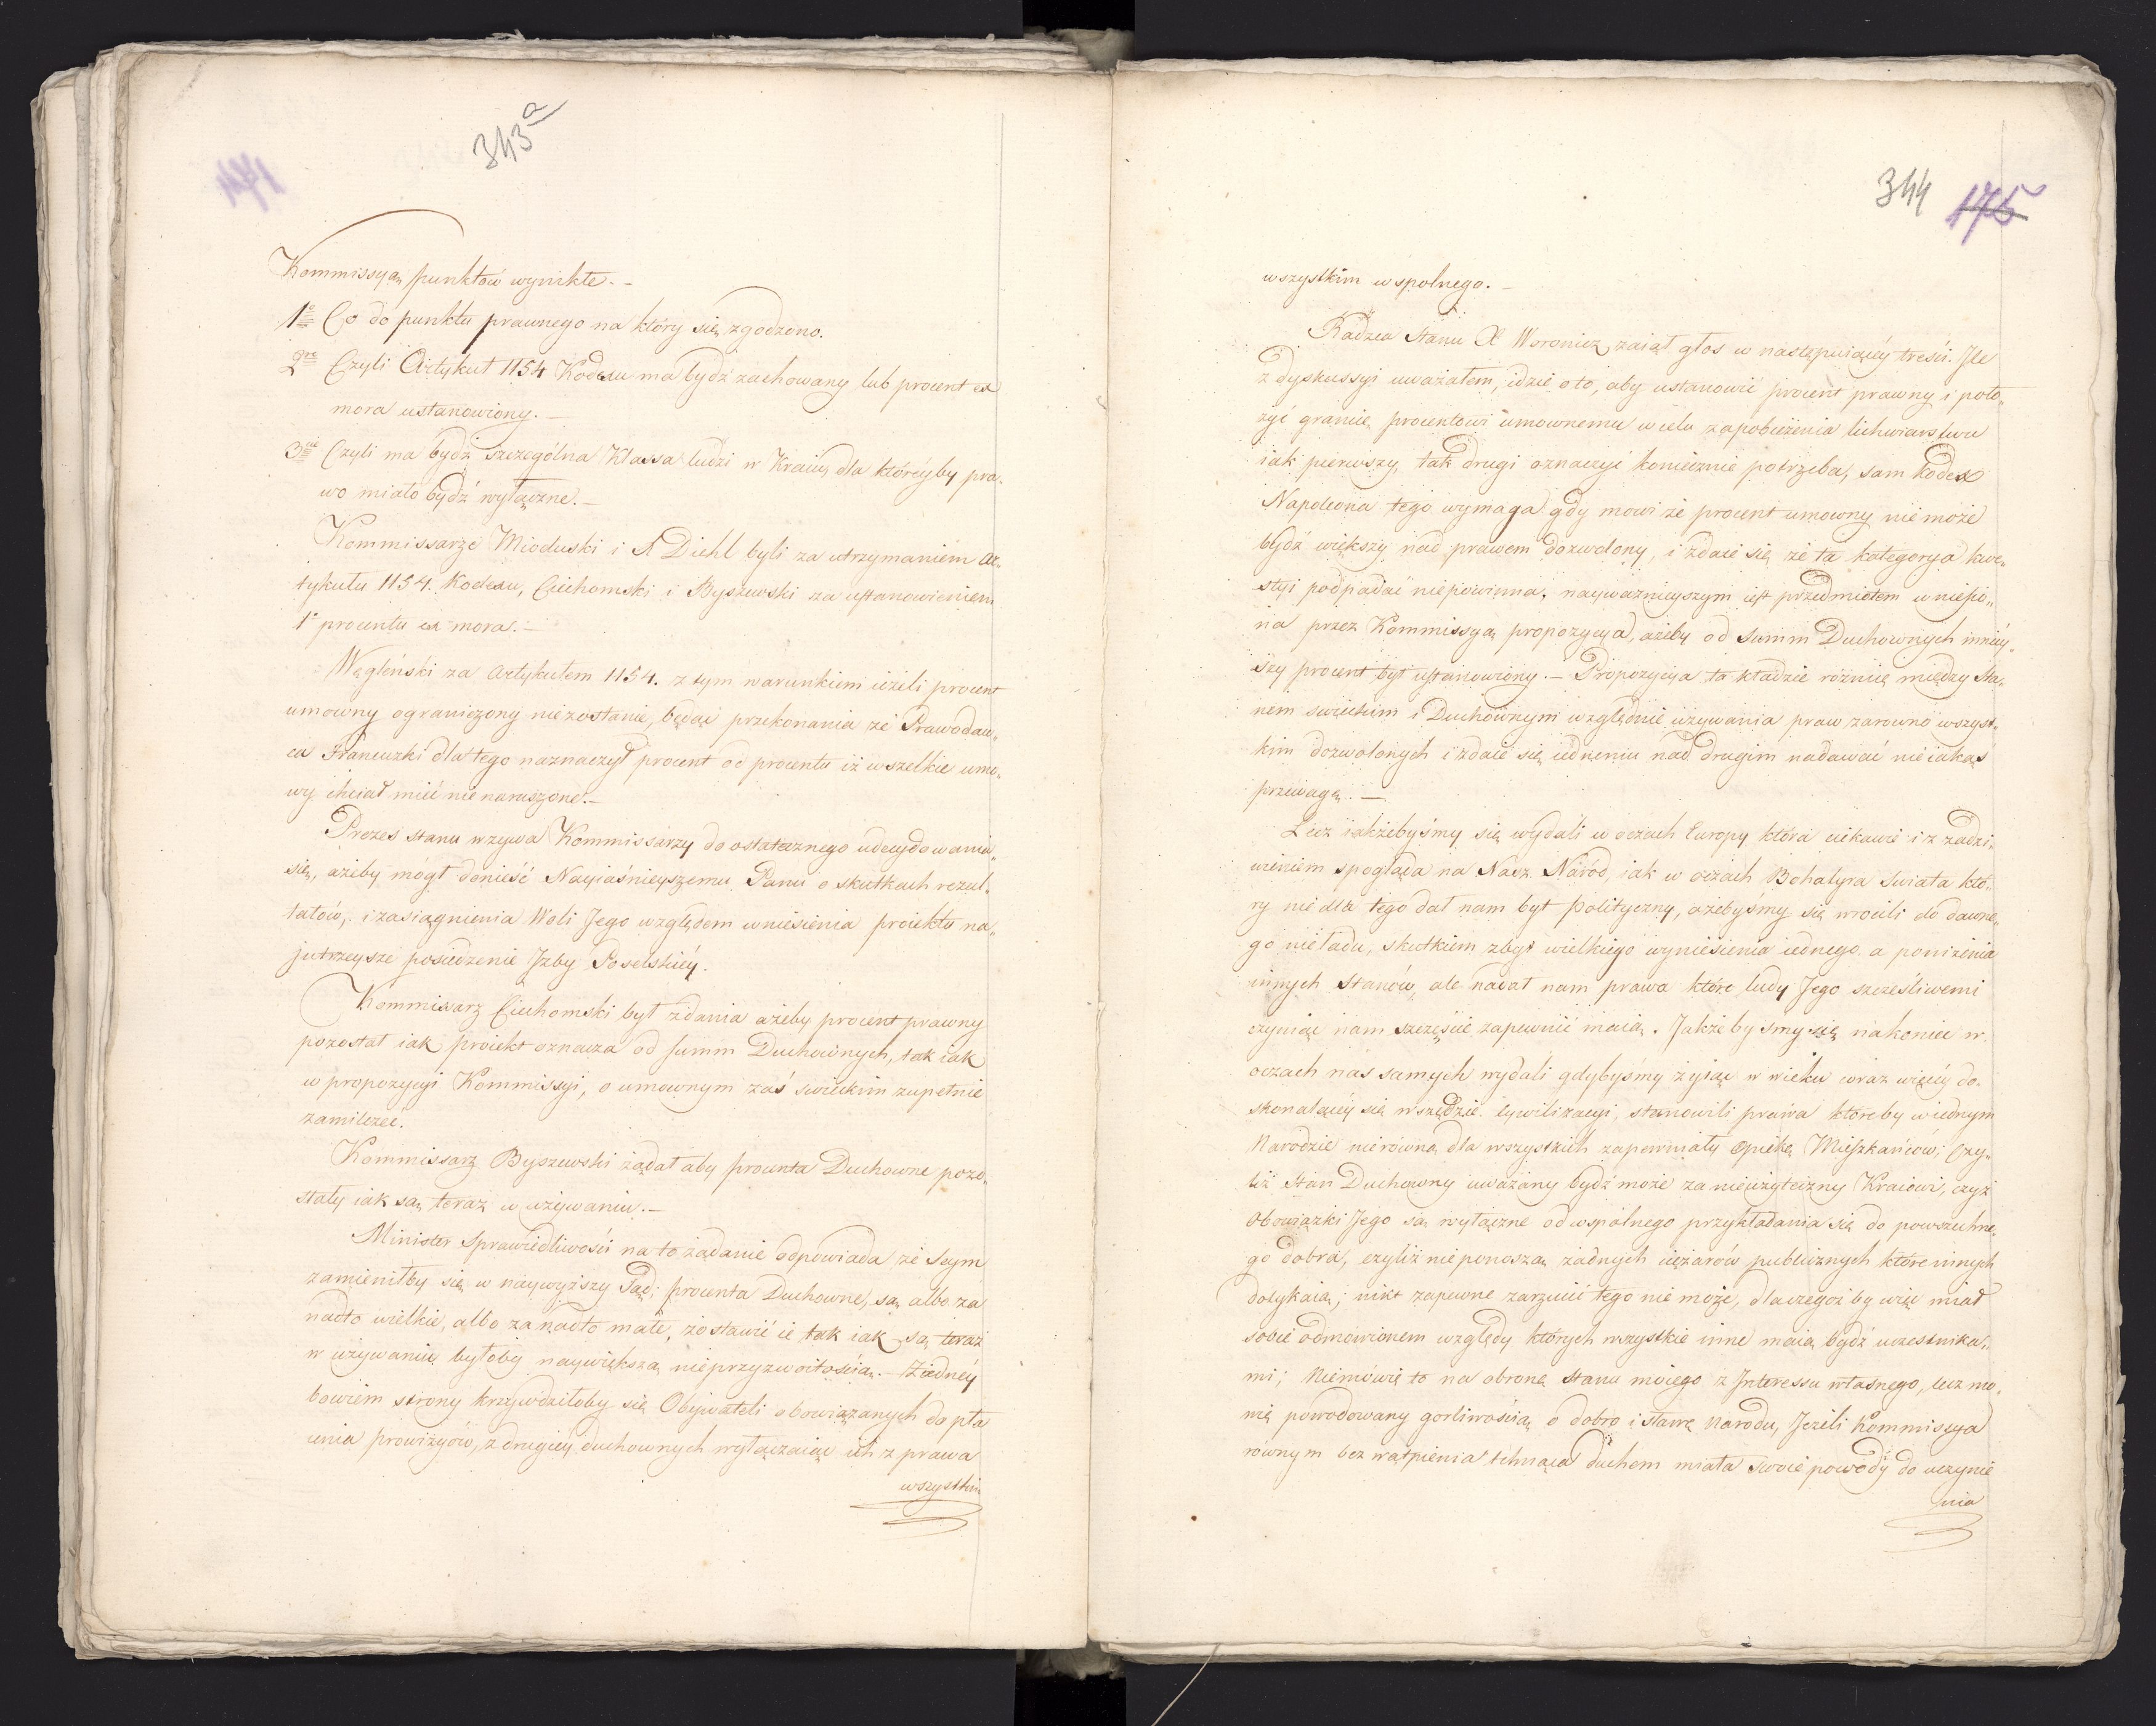 343a
171
Kommissyą punktów wynikłe. –
1e Co do punktu prawnego na który się zgodzono.
2re Czyli Artykuł 1154 Kodexu ma bydź zachowany lub procent ex
mora ustanowiony. –
3cie Czyli ma bydź szczególna Klassa ludzi w Kraiu, dla któréyby pra„
wo miało bydź wyłączne. –
Kommissarze Mioduski i A Diehl byli za utrzymaniem Ar„
tykułu 1154. Kodexu, Ciechomski i Byszewski za ustanowieniem
1o procentu ex mora. –
Węgleński za Artykułem 1154. z tym warunkiem ieżeli procent
umowny ograniczony niezostanie, będąc przekonania że Prawodaw„
ca Francuzki dla tego naznaczył procent od procentu iż wszelkie umo„
wy chciał mieć nienaruszone. –
Prezes stanu wzywa Kommissarzy do ostatecznego udecydowania„
się, ażeby mógł donieść Nayiaśnieyszemu Panu o skutkach rezul„
tatów, i zasiągnienia Woli Jego względem wniesienia proiektu na„
jutrzeysze posiedzenie Izby Poselskiéy.
Kommissarz Ciechomski był zdania ażeby procent prawny
pozostał iak proiekt oznacza od summ Duchownych, tak iak
w propozycyi Kommissyi, o umownym zaś swieckim zupełnie
zamilczeć.
Kommissarz Byszewski żądał aby procenta Duchowne pozo„
stały iak są teraz w używaniu. –
Minister Sprawiedliwości na to żądanie odpowiada że Seym
zamieniłby się w naywyższy Sąd; procenta Duchowne, są albo za
nadto wielkie, albo zanadto małe, zostawić ie tak iak są teraz
w używaniu byłoby naywiększą nieprzyzwoitością. – Ziednéy
bowiem strony krzywdziłoby się Obywateli obowiązanych do pła
cenia prowizyów, z drugiéy duchownych wyłączaiąc ich z prawa
wszystkim
344 175
wszystkim wspolnego. –
Radzca Stanu X Woronicz zaiął głos w następuiącéy treści. Ile
z dyskussyi uważałem, idzie o to, aby ustanowić procent prawny i poło„
żyć granicę procentowi umownemu w celu zapobieżenia lichwiarstwu
iak pierwszy, tak drugi oznaczyć koniecznie potrzeba, sam Kodex
Napoleona tego wymaga gdy mowi że procent umowny nie może
bydź większy nad prawem dozwolony, i zdaie się że ta kategorya kwe„
styi podpadać niepowinna, nayważnieyszym iest przedmiotem wniesio„
na przez Kommissyą propozycya, ażeby od Summ Duchownych mniéy„
szy procent był ustanowiony. – Propozycya ta kładzie różnicę między Sta„
nem swieckim i Duchownym względnie używania praw zarowno wszyst„
kim dozwolonych i zdaie się iednemu nad drugim nadawać nieiakąś
przewagę. –
Lecz iakżebyśmy się wydali w oczach Europy która ciekawie i z zadzi„
wieniem spogląda na Nasz Naród, iak w oczach Bohatyra Swiata któ„
ry nie dla tego dał nam byt polityczny, ażebysmy się wrocili do dawne„
go nieładu, skutkiem zbyt wielkiego wyniesienia iednego a poniżenia
innych Stanów, ale nadał nam prawa które ludy Jego szcześliwemi
czyniąc nam szczęście zapewnić maią. Jakżeby smy się nakoniec w
oczach nas samych wydali gdybysmy żyiąc w wieku coraz więcéy do„
skonalącéy się wszędzie cywilizacyi, stanowili prawa któreby wiednym
Narodzie nierówną dla wszystkich zapewniały Opiekę Mieszkańców; Czy„
liż Stan Duchowny uważany bydź może za nieużyteczny Kraiowi, czyż
Obowiązki Jego są wyłączne od wspólnego przykładania się do powszechne„
go dobra, czyliż nieponoszą żadnych ciężarów publicznych które innych
dotykaią; nikt zapewne zarzucić tego nie może, dlaczegożby więc miał
sobie odmowionem względy których wszystkie inne maią bydź uczestnika„
mi; Niemówię to na obronę Stanu moiego z Interessu własnego, lecz mo„
wię powodowany gorliwością o dobro i sławę Narodu, Jeżeli Kommissya
równym bez wątpienia tchnąca duchem miała swoie powody do uczynie
nia